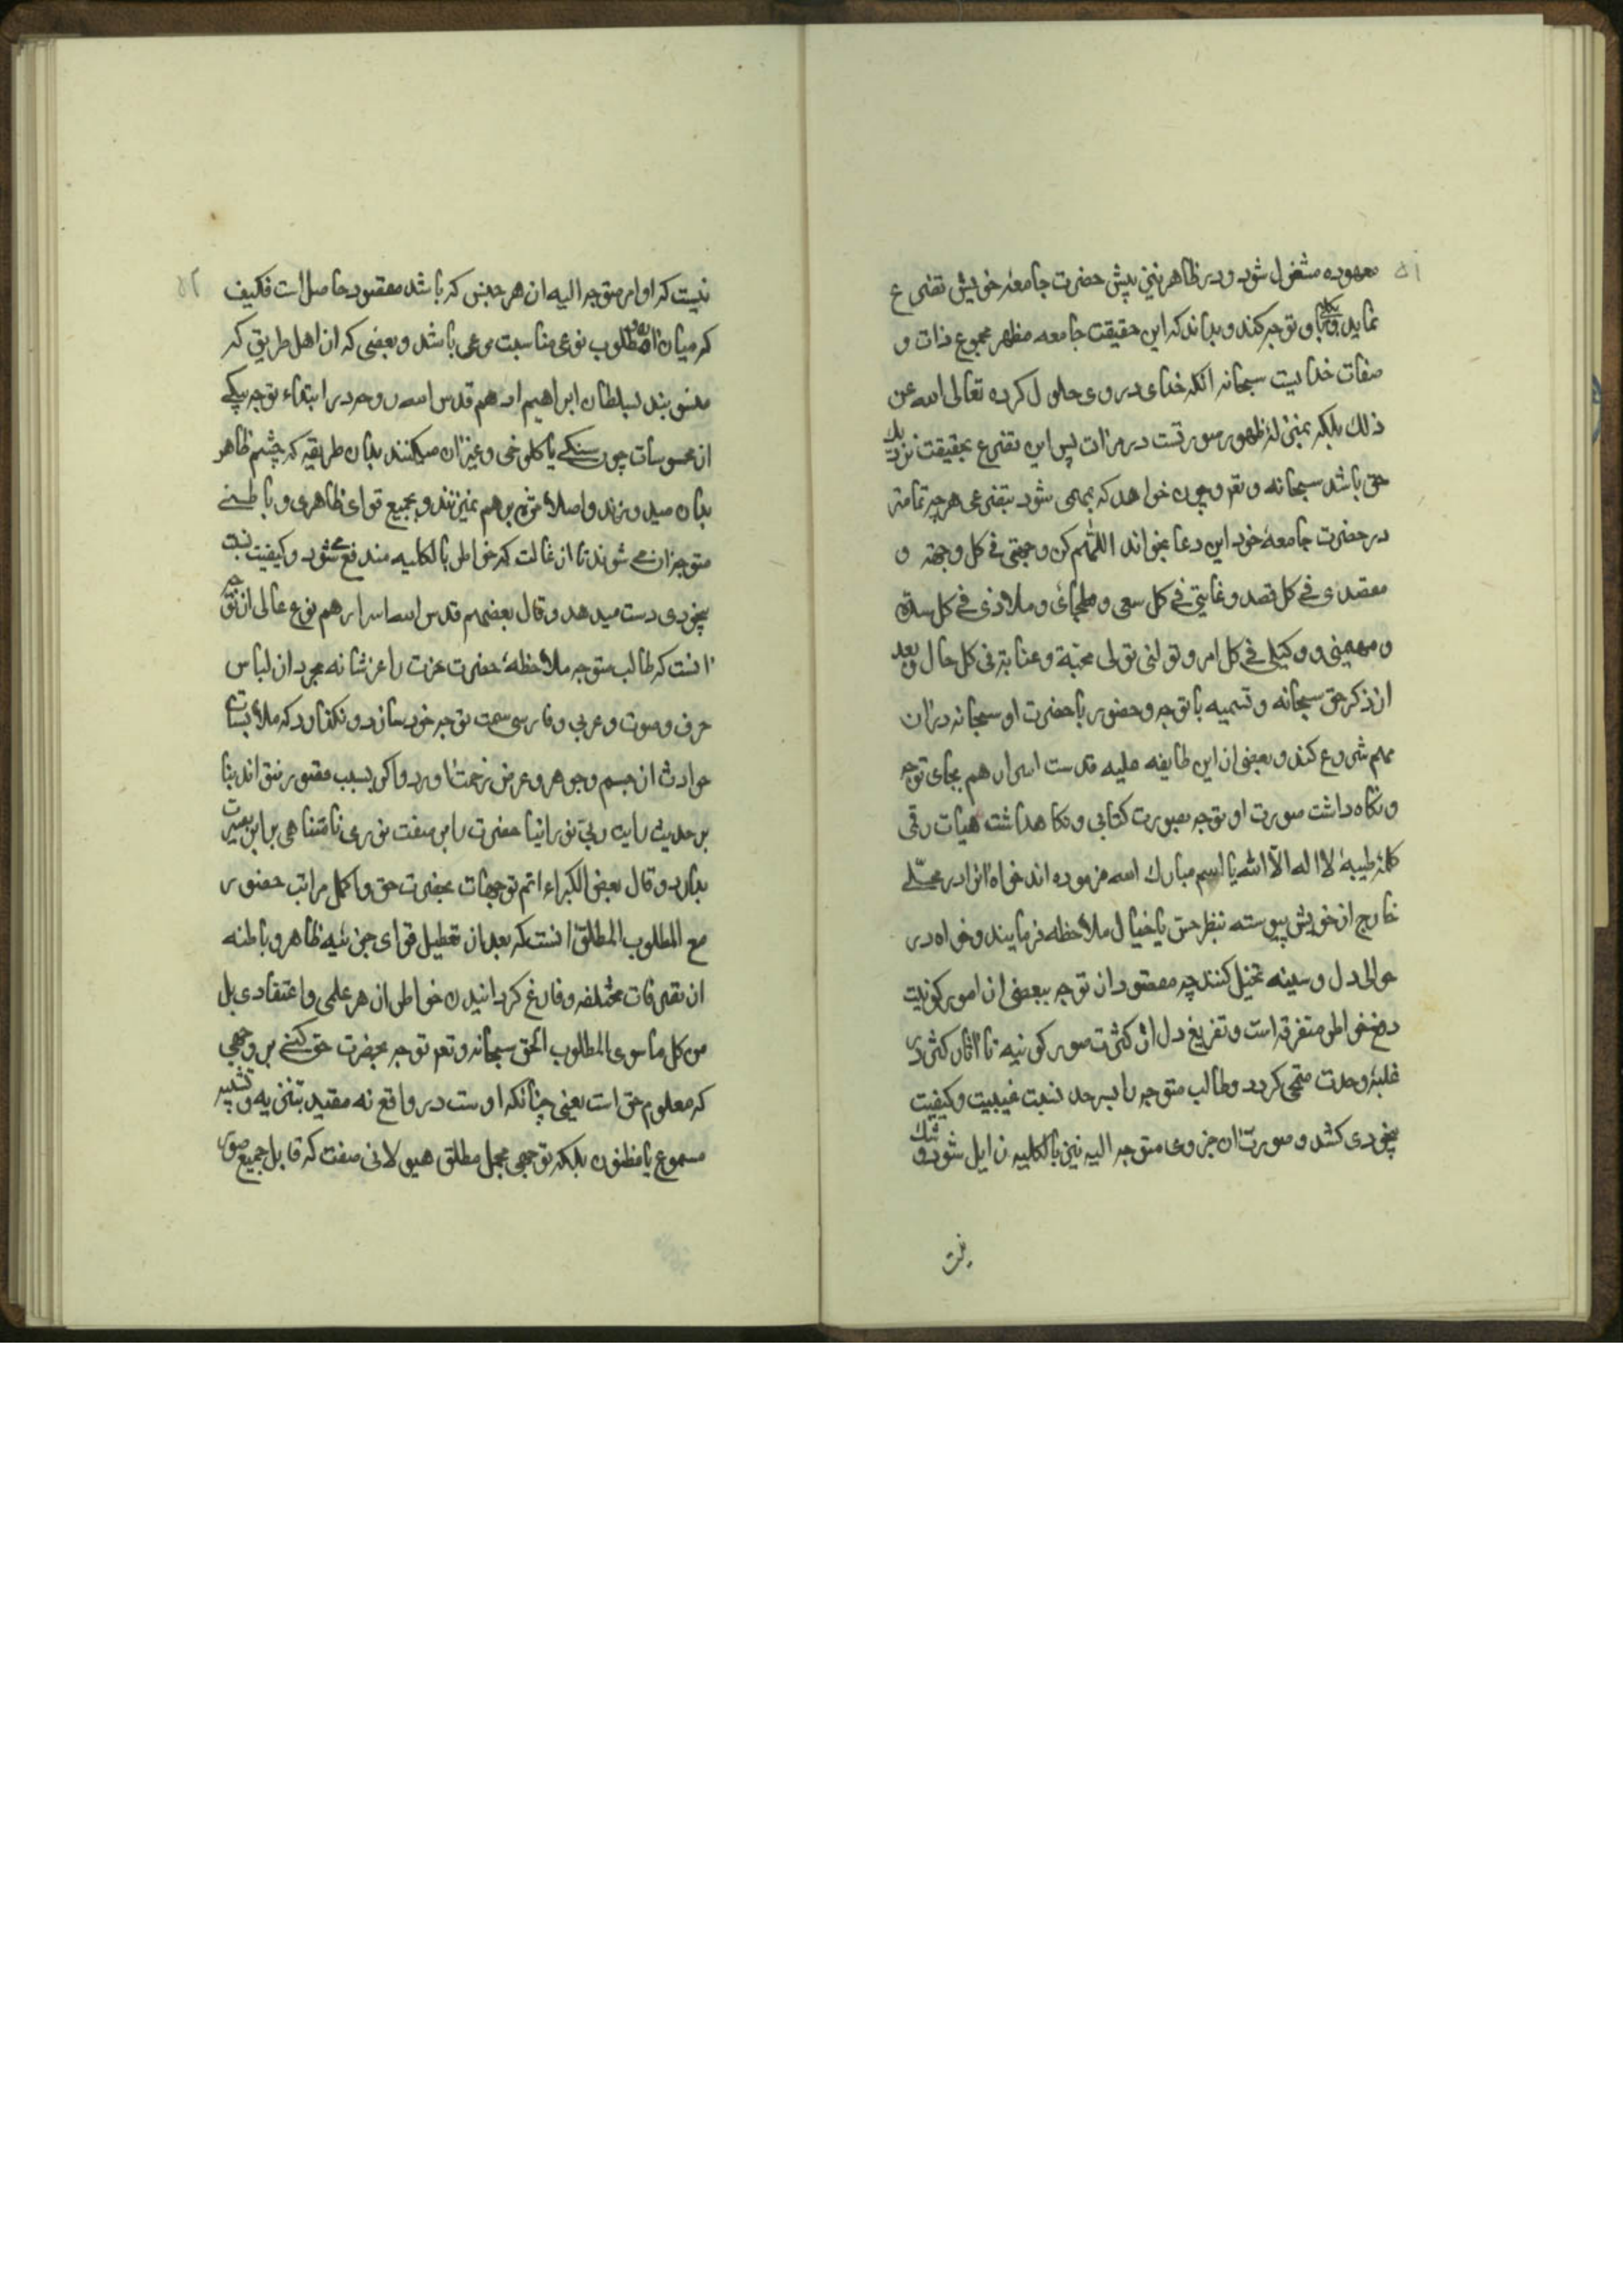 ۵۱
معهوده مشغول شود و در ظاهر نیز پیش حضرت جامعهٔ خویش تضرع
نماید و بکلی باو توجه کند و بداند که این حقیقت جامعه مظهر مجموع ذات و
صفات خدایست سبحانه آنکه خدای در وی حلول کرده تعالی الله عن
ذلك بلکه بمنزلهٔ ظهور صورتست در مرات پس این تضرع بحقیقت نزدیك
حق باشد سبحانه و تعـ و چون خواهد که بمهمی شود بتضرعی هرچه تمامتر
در حضرت جامعهٔ خود این دعا بخواند اللهم کن وجهتی فی کل وجهة و
مقصدی فی کل قصد و غایتی فی کل سعی و ملجائ و ملاذی فی کل شدة
و مهیمنی و وکیلی فی کل امر و تولنی تولی محبة و عنایة فی کل حال و بعد
از ذکر حق سبحانه و تسمیه با توجه و حضور با حضرت او سبحانه در ان
مهم شروع کند و بعضی از این طایفه علیه قدست اسرارهم بجای توجه
و نگاه داشت صورت او توجه بصورت کتابی و نگاهداشت هیات رقمی
کلمهٔ طیبهٔ لا اله الا الله یا اسم مبارك الله فرموده اند خواه انرا در محلی
خارج از خویش پیوسته بنظر حس یا خیال ملاحظه فرمایند و خواه در
حوالی دل و سینه تخیل کنند چه مقصود از توجه ببعضی از امور کونیت
دفع خواطر متفرقه است و تفریغ دل از کثرت صور کونیه تا آثار کثرت در
غلبهٔ وحدت متمحی کردد و طالب متوجه را بسرحد نسبت غیبیت و کیفیت
بیخودی کشد و صورت ان جزوی متوجه الیه نیز بالکلیه زایل شود و شك
نیست
۵۲
نیست که او امر متوجه الیه از هر جنس که باشد مقصود حاصل است فکیف
که میان او و مطلوب نوعی مناسبت مرعی باشد و بعضی که از اهل طریق که
منسوبند بسلطان ابراهیم ادهم قدس الله روحه در ابتداء توجه بیکی
از محسوسات چون سنکی یا کلوخی و غیر ان میکنند بدان طریقه که چشم ظاهر
بدان میدوزند و اصلا مژه بر هم نمیزنند و بجمیع قوای ظاهری و باطنی
متوجه ان می شوند تا ان غایت که خواطر بالکلیه مندفع میشود و کیفیت نسبت
بیخودی دست میدهد و قال بعضهم قدس الله اسرارهم نوع عالی از توجه
انست که طالب متوجه ملاحظهٔ حضرت عزت را عز شانه مجرد از لباس
حرف و صوت و عربی و فارسی سمت توجه خود سازد و نکذارد که ملابسات
حوادث از جسم و جوهر و عرض زحمت اورد و اکر بسبب قصور نتواند بنا
بر حدیث رایت ربی نورانیا حضرت را بر صفت نوری نامتناهی برابر بصیرت
بدارد و قال بعض الکبراء اتم توجهات بحضرت حق و اکمل مراتب حضور
مع المطلوب المطلق انست که بعد از تعطیل قوای جزئیه ظاهر و باطنه
از تصرفات مختلفه و فارغ کردانیدن خواطر از هر علمی و اعتقادی بل
من کل ما سوی المطلوب الحق سبحانه و تعـ توجه بحضرت حق کنی بر وجهی
که معلوم حق است یعنی چنانکه اوست در واقع نه مقید بتنزیه و تشبیه
مسموع یا مظنون بلکه توجهی مجمل مطلق هیولانی صفت که قابل جمیع صور